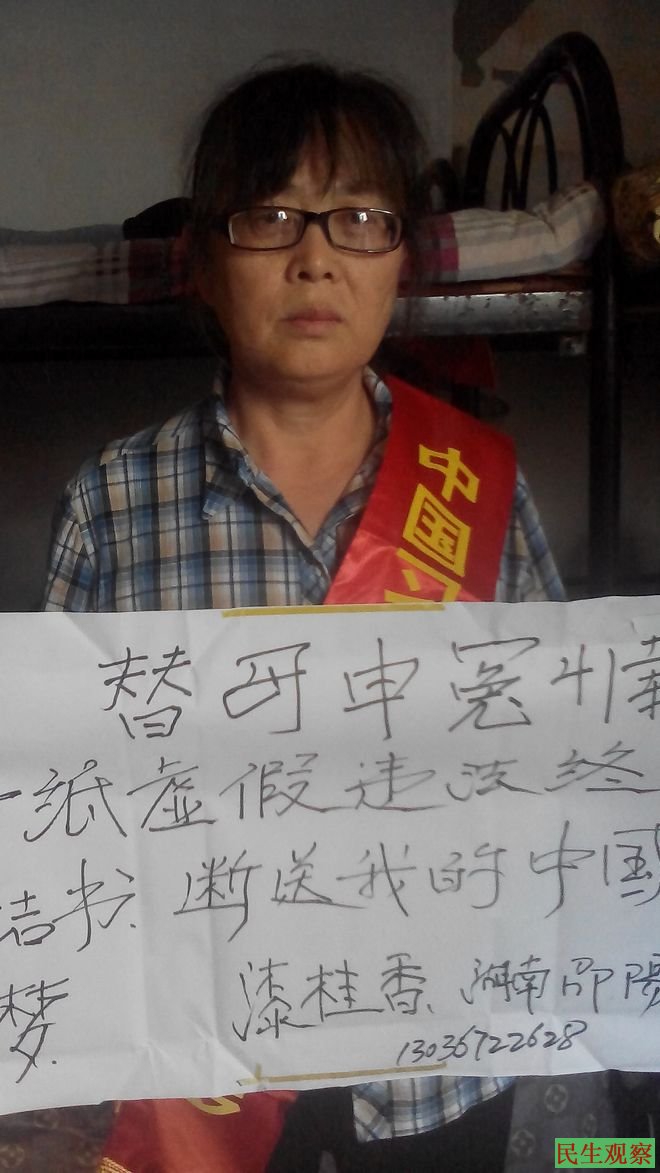 中国
替 申冤
一纸虚假违法终
结书.断送我的中国
梦. 漆桂香、湖南邵陽
13036722628
民生观察